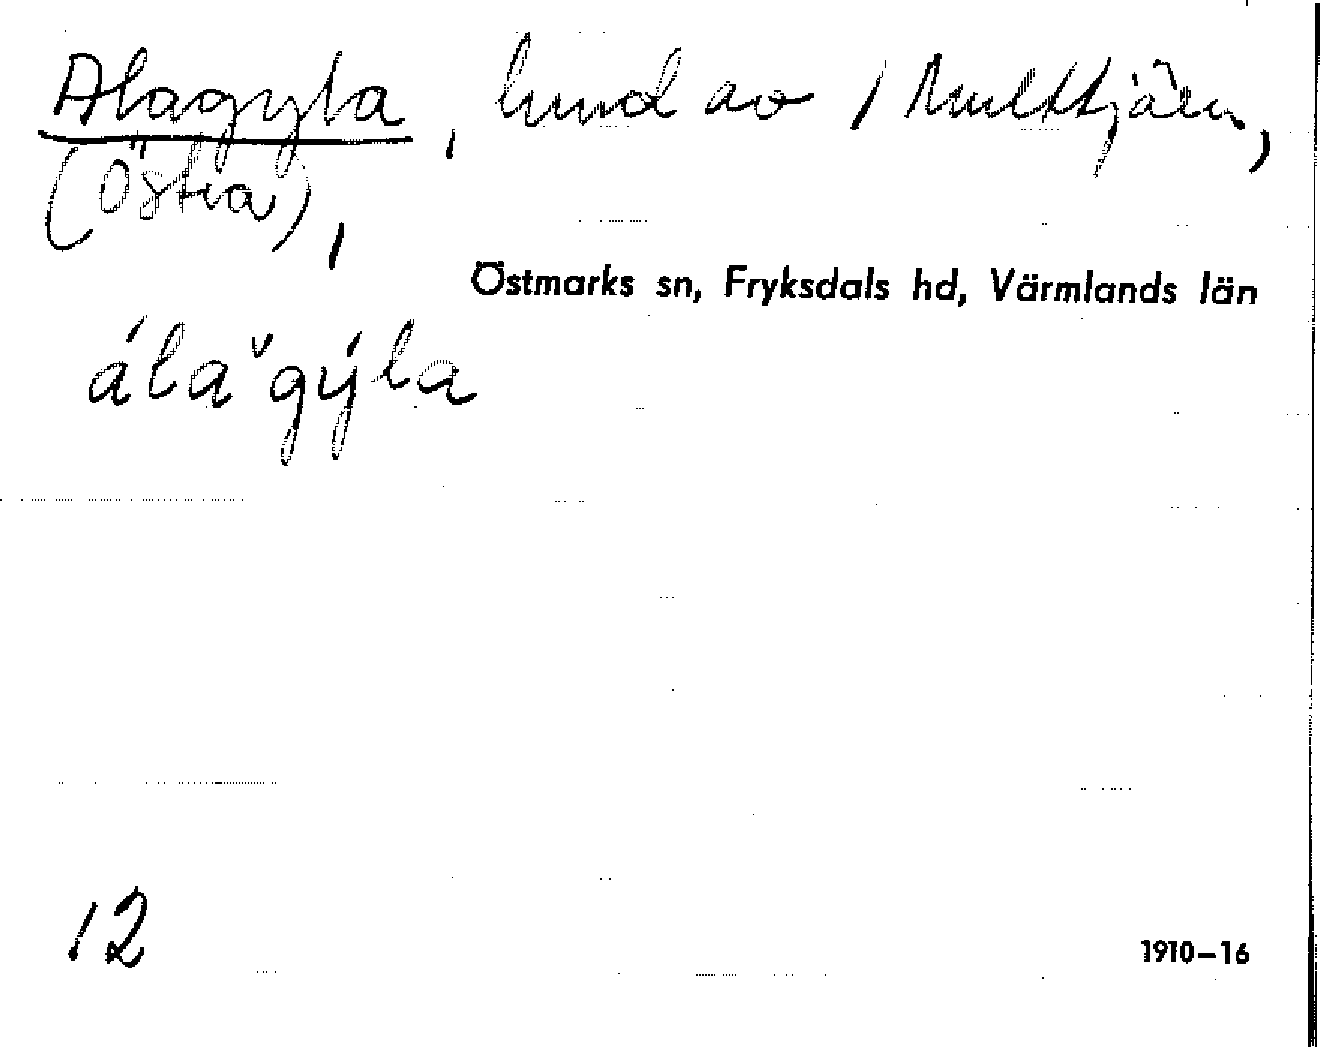 Alagyla, lund av 1 Multtjärn,
(Östra),
Östmarks sn, Fryksdals hd, Värmlands län
álaˇgýla
12
1910–16